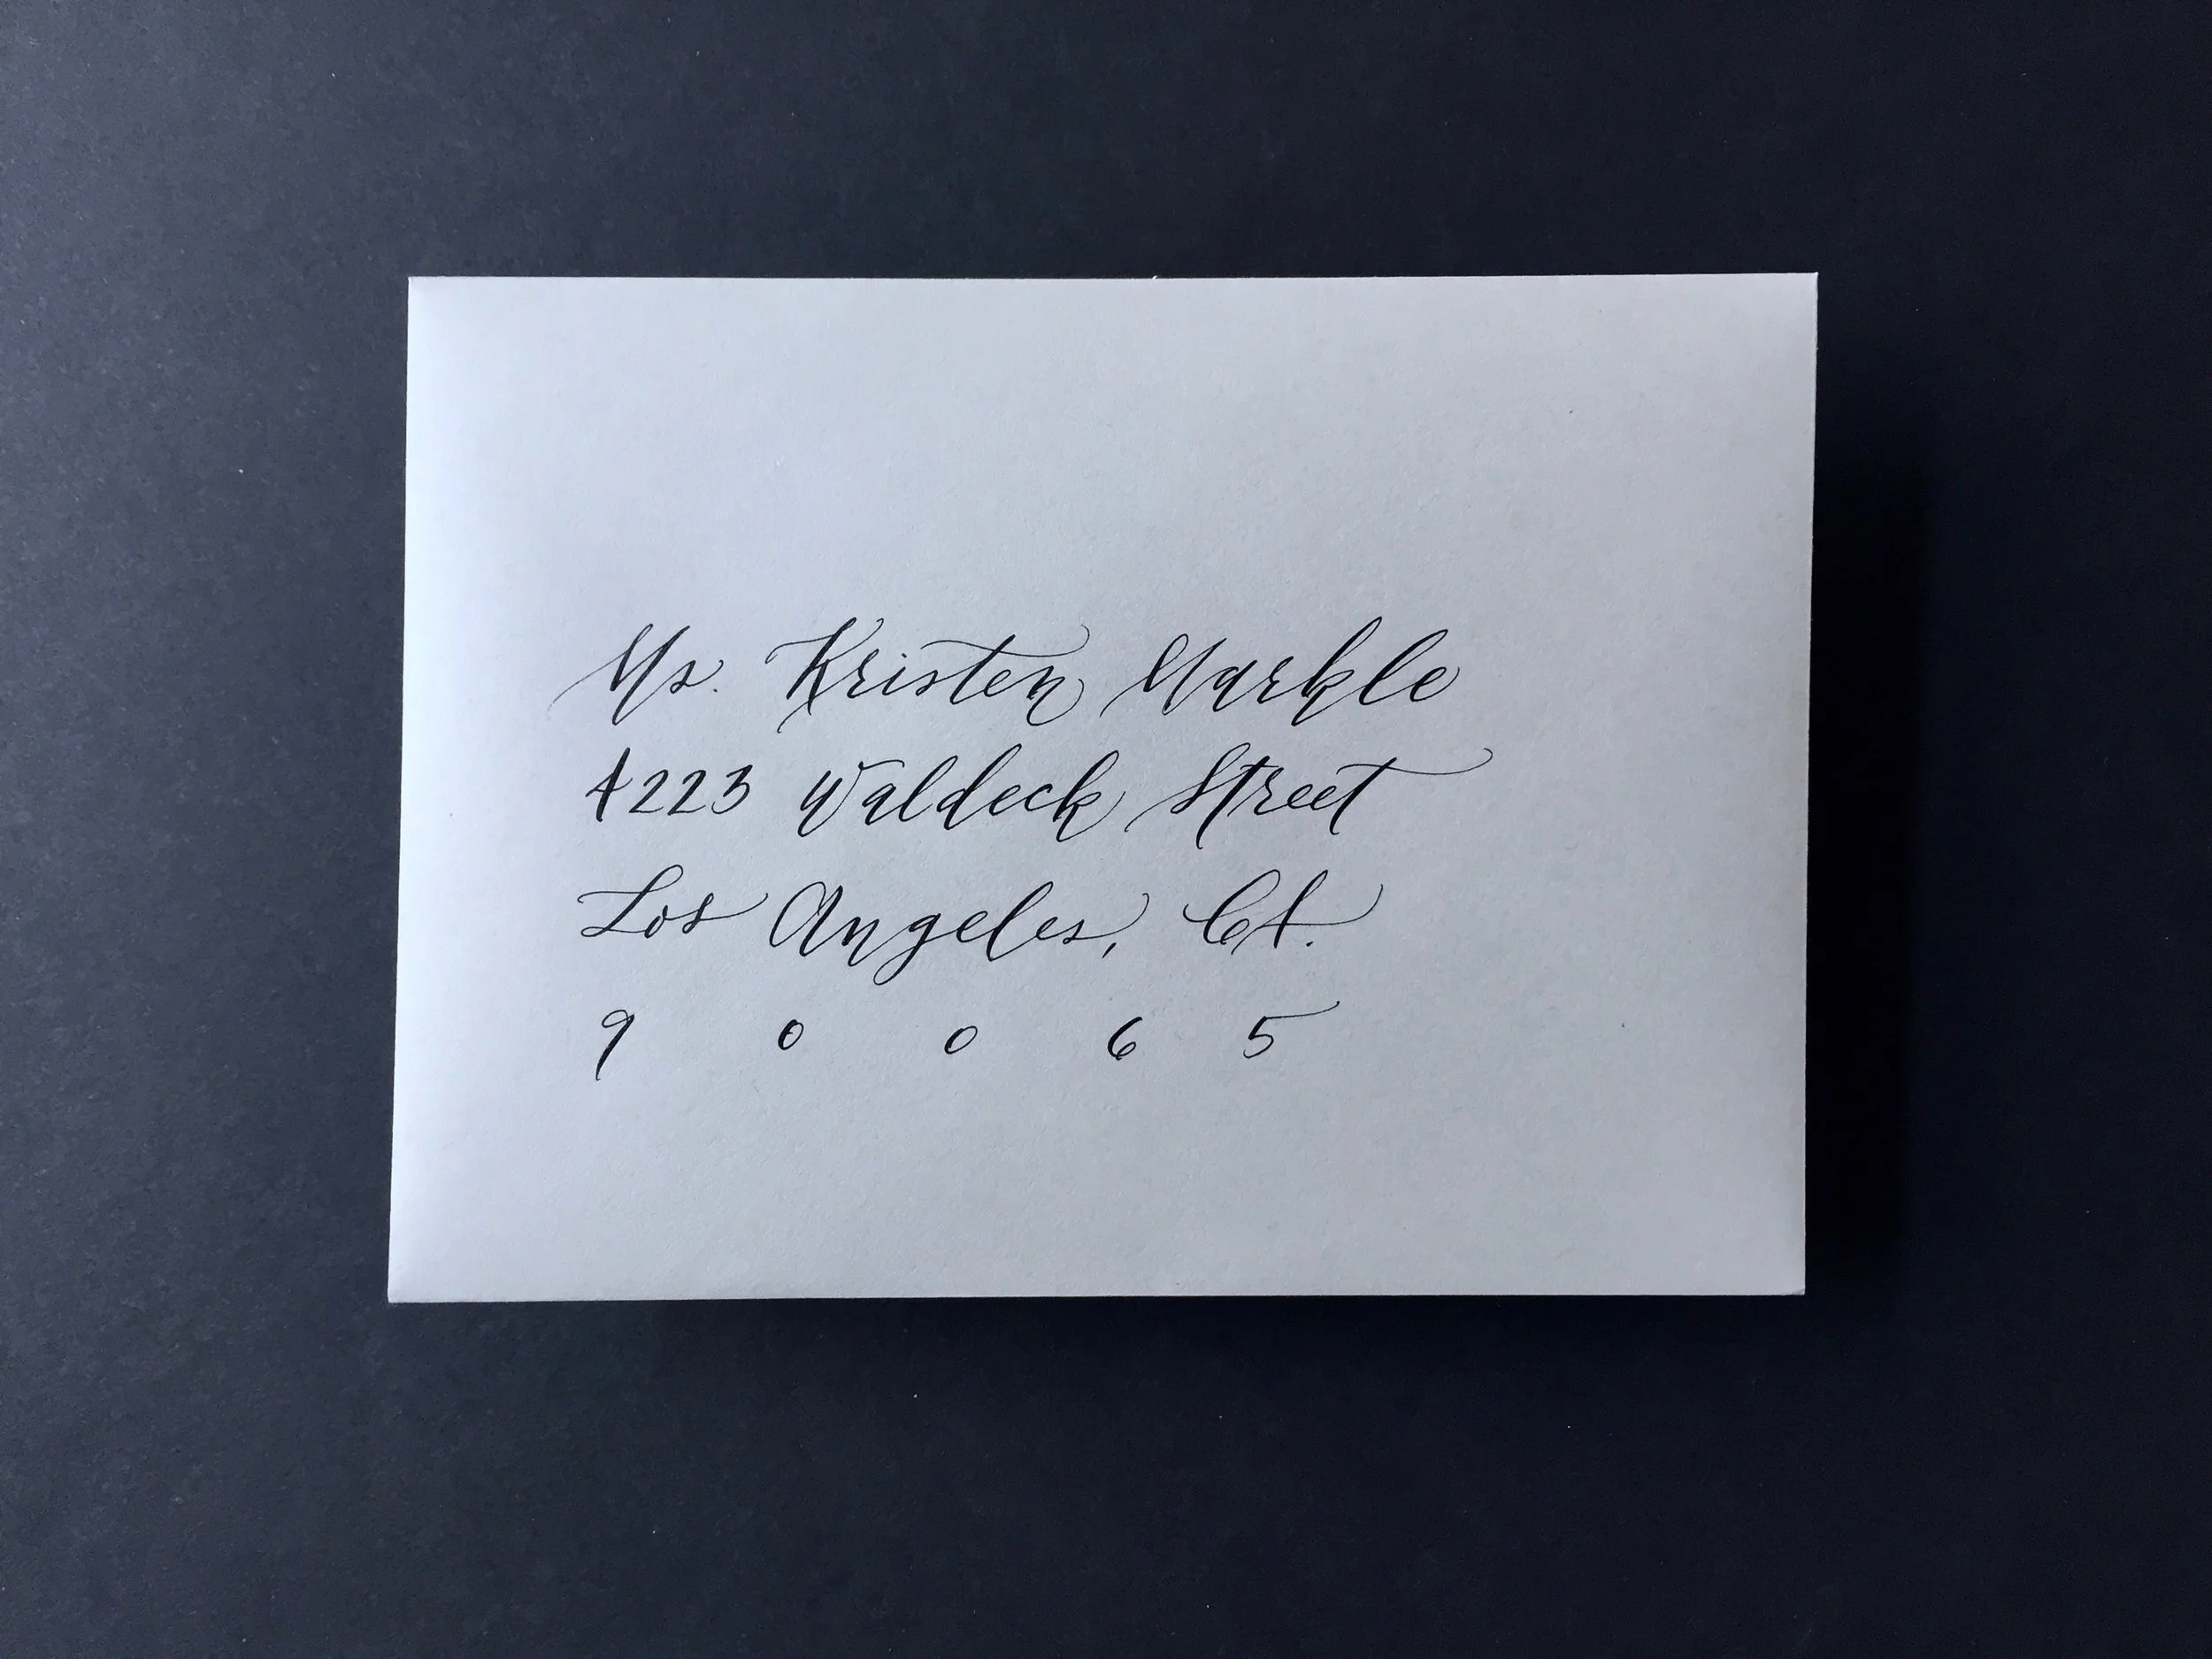 Ms. Kristen Markle
4223 Waldeck Street
Los Angeles, CA.
9 0 0 6 5